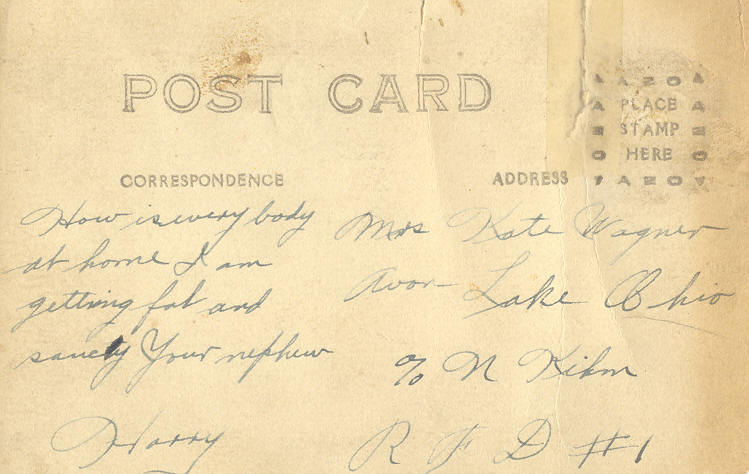 POST CARD
AZOA
PLACE
STAMP
HERE
AZOA
CORRESPONDENCE
ADDRESS
How is every body
at home I am
getting fat and
saucy Your nephew
Harry
Mrs Kate Wagner
Avon Lake Ohio
℅ N Kihm
R F D #1